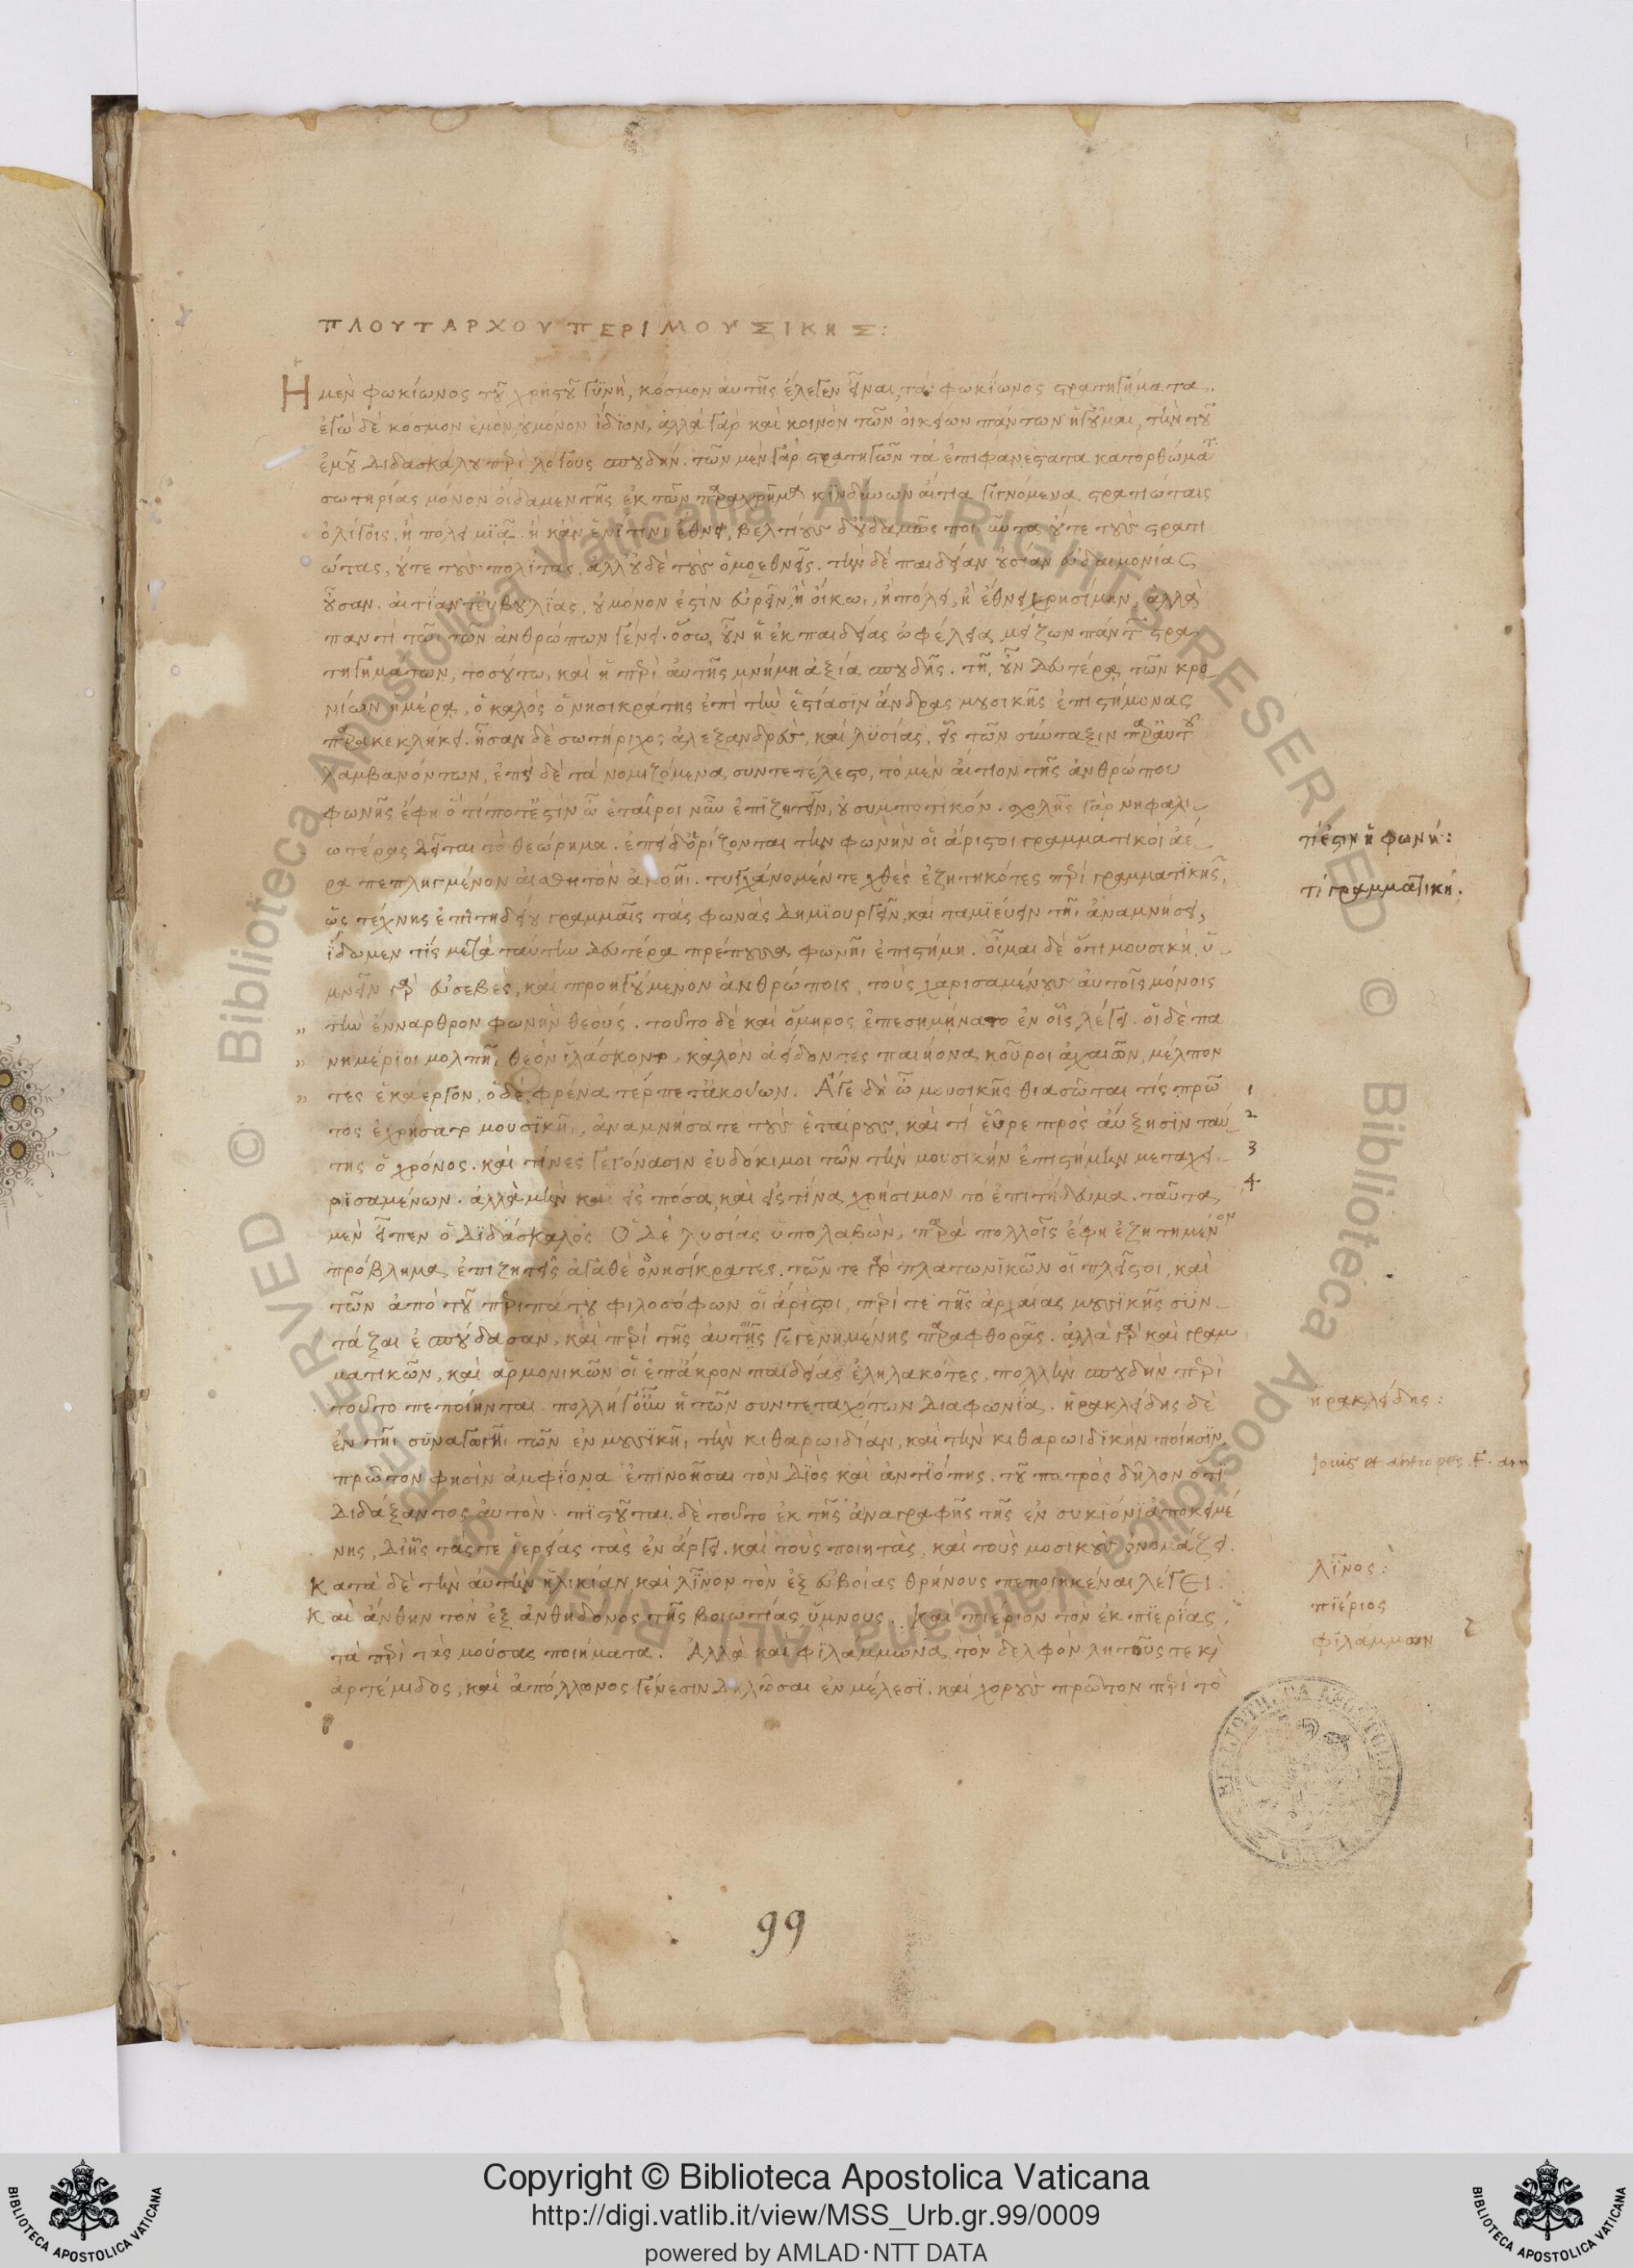 ΠΛΟΥΤΑΡΧΟΥ ΠΕΡΙ ΜΟΥΣΙΚΗΣ:
Η μὲν φωκίωνος τοῦ χρηστοῦ γϋνὴ, κόσμον ἀυτῆς ἔλεγεν εἶναι, τὰ φωκίωνος στρατηγήματα.
ἐγὼ δὲ κόσμον ἐμὸν, ου μόνον ἴδϊον, ἀλλὰ γὰρ καὶ κοινὸν τῶν ὀικείων πάντων ἡγοῦμαι, τὴν τοῦ
ἐμοῦ διδασκάλου περὶ λόγους σπουδήν. τῶν μὲν γὰρ στρατηγῶν τὰ ἐπιφανέστατα κατορθώματ
σωτηρίας μόνον ὄιδαμεν τῆς ἐκ τῶν παραχρῆμα κϊνδύνων ἄιτια γιγνόμενα στρατιώταις
ὀλίγοις, ἢ πόλει μϊᾶ. ἢ κἂν ἑνί τινι ἔθνει, βελτίους δ' ουδαμῶς ποι οῦντα ούτε τοὺς στρατι
ώτας, ούτε τοὺς πολίτας. ἀλλ' ουδὲ τοὺς ὁμοεθνεῖς. τὴν δὲ παιδείαν ουσίαν ευδαιμονίας
οῦσαν. ἀιτίαν τ' ευβουλίας, ου μόνον ἐστὶν ευρεῖν, ἢ ὄικωι, ἢ πόλει, ἢ ἔθνει χρησίμην, ἀλλὰ
παντὶ τῶι των ἀνθρώπων γένει. ὅσω οῦν ἡ ἐκ παιδείας ὠφέλεια μείζων πάντ στρα
τηγημάτων, τοσούτω, καὶ ἡ περὶ ἀυτῆς μνήμη ἀξία σπουδῆς. τῆ, οῦν δευτέρα τῶν κρο
νίων ἡμέρα, ὁ καλὸς ὀνησικράτης ἐπὶ τὴν ἑστίασϊν ἄνδρας μουσικῆς ἐπιστήμονας
παρακεκλήκει. ἦσαν δὲ σωτήριχος ἀλεξανδρεὺς, καὶ λϋσίας, εἷς τῶν σύνταξιν παρ' ἀυτου
λαμβανόντων, ἐπεὶ δὲ τὰ νομιζόμενα συντετέλεστο, τὸ μὲν ἄιτιον τῆς ἀνθρώπου
φωνῆς ἔφη ὅ τί ποτ' ἐστὶν ὦ ἑταῖροι νῦν ἐπϊζητεῖν, ου συμποτικόν. σχολῆς γὰρ νηφαλι
ωτέρας δεῖται τὸ θεώρημα. ἐπεὶ δ' ὁρίζονται τὴν φωνὴν ὁι ἄριστοι γραμματικοὶ ἀέ
ρα πεπληγμένον ἀισθητὸν ἀκοῆι. τυγχάνομέν τε χθὲς ἐζητηκότες περὶ γραμματϊκῆς,
ὡς τέχνης ἐπιτηδείου γραμμᾶις τὰς φωνὰς δημϊουργεῖν, καὶ ταμϊεύειν τῆι ἀναμνήσει,
ἴδωμεν τίς μετὰ ταύτην δευτέρα πρέπουσα φωνῆι ἐπιστήμη. οἶμαι δὲ ὅτι μουσικὴ. ὑ
μνεῖν γὰρ ευσεβὲς, καὶ προηγούμενον ἀνθρώποις, τοὺς χαρισαμένους ἀυτοῖς μόνοις
" τὴν ἔνναρθρον φωνὴν θεούς. τοῦτο δὲ καὶ ὅμηρος ἐπεσημήνατο ἐν οἷς λέγει. οἱ δὲ πα
" νημέριοι μολπῆ, θεὸν ἱλάσκοντο, καλὸν ἀείδοντες παιήονα κοῦροι ἀχαιῶν, μέλπον
" τες ἑκάεργον, ὁ δὲ φρένα τέρπετ' ἀκούων. Ἄγε δὴ ὦ μουσικῆς θιασῶται τίς πρῶ 1
τος ἐχρήσατο μουσϊκῆ, ἀναμνήσατε τοὺς ἑταίρους, καὶ τί ἕυρε πρὸς ἄυξησϊν ταύ 2
της ὁ χρόνος. καὶ τίνες γεγόνασιν ἐυδόκιμοι τῶν τὴν μουσικὴν ἐπιστήμην μεταχει 3
ρϊσαμένων. ἀλλὰ μὴν καὶ εἰς πόσα, καὶ εἰς τίνα χρήσιμον τὸ ἐπιτήδευμα. ταῦτα 4
μὲν εἶπεν ὁ διδάσκαλος Ὁ δὲ λυσίας ὑπολαβὼν, παρὰ πολλοῖς ἔφη ἐζητημένον
πρόβλημα ἐπιζητεῖς ἀγαθὲ ὀνησίκρατες. τῶν τε γὰρ πλατωνϊκῶν ὁι πλεῖστοι, καὶ
τῶν ἀπὸ τοῦ περιπάτου φιλοσόφων ὁι ἄριστοι, περί τε τῆς ἀρχαίας μουσϊκῆς σϋν
τάξαι ἐσπούδασαν, καὶ περὶ τῆς ἀυτῆς γεγενημένης παραφθορᾶς. ἀλλὰ γὰρ καὶ γραμ
ματικῶν, καὶ ἁρμονικῶν ὁι ἐπ' ἄκρον παιδείας ἐληλακότες, πολλὴν σπουδὴν περὶ
τοῦτο πεποίηνται πολλὴ γοῦν ἡ τῶν συντεταχότων διαφωνία. ἡρακλείδης δὲ
ἐν τῆι σϋναγωγῆι τῶν ἐν μουσϊκῆι τὴν κιθαρωιδίαν, καὶ τὴν κιθαρωιδϊκὴν ποίησϊν
πρῶτον φησὶν ἀμφίονα ἐπϊνοῆσαι τὸν διὸς καὶ ἀντϊόπης, τοῦ πατρὸς δῆλον ὅτι
διδάξαντος ἀυτόν. πϊστοῦται δὲ τοῦτο ἐκ τῆς ἀναγραφῆς τῆς ἐν συκϊόνι ἀποκειμέ
νης, δι' ἧς τάς τε ἱερείας τὰς ἐν ἄργει. καὶ τοὺς ποιητὰς, καὶ τοὺς μοσικοὺς ὀνομάζει.
Κατὰ δὲ τὴν ἀυτὴν ἡλικίαν καὶ λῖνον τὸν ἐξ ευβοίας θρήνους πεποιηκέναι λέγει.
Καὶ ἄνθην τὸν ἐξ ἀνθηδόνος τῆς βοιωτίας ὕμνους. Καὶ πιέριον τὸν ἐκ πϊερίας.
τὰ περὶ τὰς μούσας ποιήματα. Ἀλλὰ καὶ φϊλάμμωνα τὸν δελφὸν λητοῦς τε καὶ
ἀρτέμιδος, καὶ ἀπόλλωνος γένεσιν δηλῶσαι ἐν μέλεσϊ. καὶ χοροὺς πρῶτον περὶ τὸ
τί ἐστιν ἡ φωνή:
τί γραμματϊκή.
ἡρακλείδης:
Jouis et antiopes. f.
λῖνος:
πϊέριος
φϊλάμμων
99
Copyright © Biblioteca Apostolica Vaticana
http://digi.vatlib.it/view/MSS_Urb.gr.99/0009
powered by AMLAD·NTT DATA
BIBLIOTECA APOSTOLICA VATICANA
BIBLIOTECA APOSTOLICA VATICANA
© Biblioteca Apostolica Vaticana ALL RIGHTS RESERVED © Biblioteca Apostolica Vaticana ALL RIGHTS RESERVED